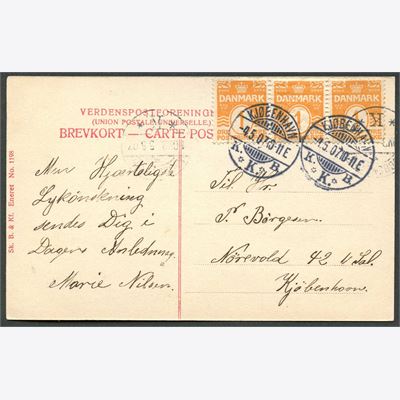 DANMARK DANMARK DANMARK
1 1
VERDENSPOSTFORENINGE
(UNION POSTALE UNIVERSELLE)
BREVKORT — CARTE POS
KJØBENHAVN
-4.5.07.10-11.E
K. K. B
KJØBENHAVN
-4.5.07.10-11.E
K. K. B
K
Sk. B. & Kf. Eneret No. 1198
Min Hjærteligste
Lykønskning
sendes Dig i
Dagens Anledning
Marie Nilsen.
Til Hr.
P. Børgesen
Nørevold 42 Sal.
Kjøbenhavn.